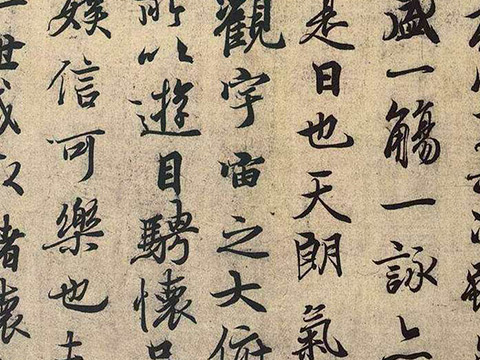 次
盛一觴一詠亦
是日也天朗氣
觀宇宙之大俯
所以遊目騁懷足
娛信可樂也夫
一世或取諸懷